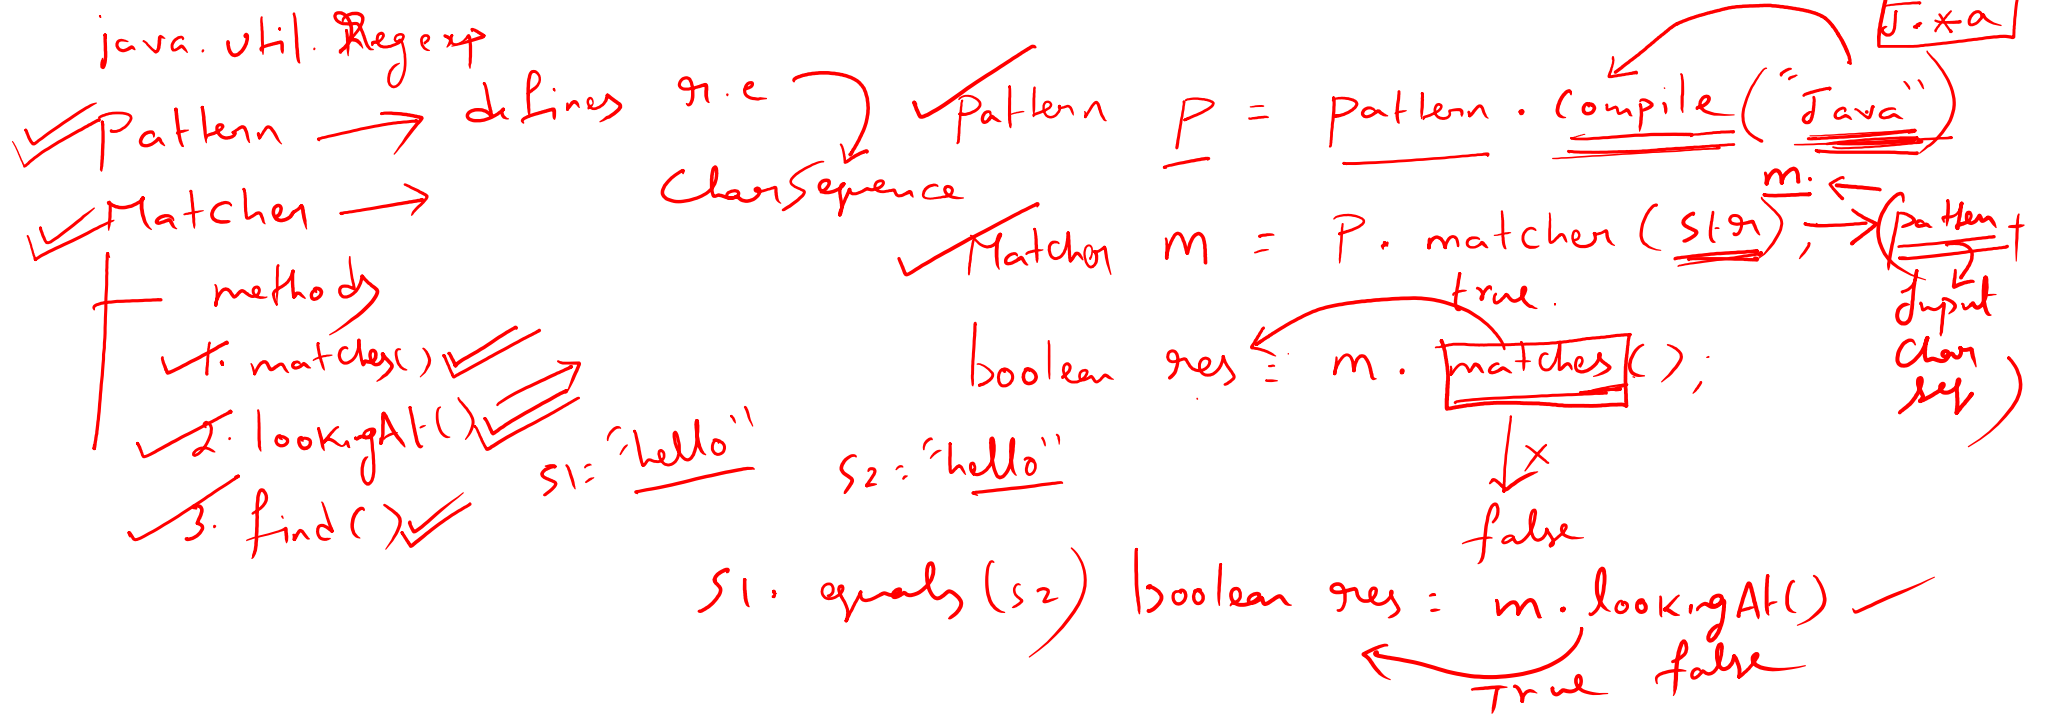 java.util.Regexp
Pattern → defines r.e
CharSequence
Matcher →
methods
1. matches()
2. lookingAt()
3. find()
S1= "hello" S2= "hello"
S1. equals(S2)
J.*a
Pattern P = pattern.compile("Java")
m.
Matcher m = P. matcher(str); → (pattern +
Input
Char
seq)
true.
boolean res = m. matches();
x
false
boolean res = m. lookingAt()
True false